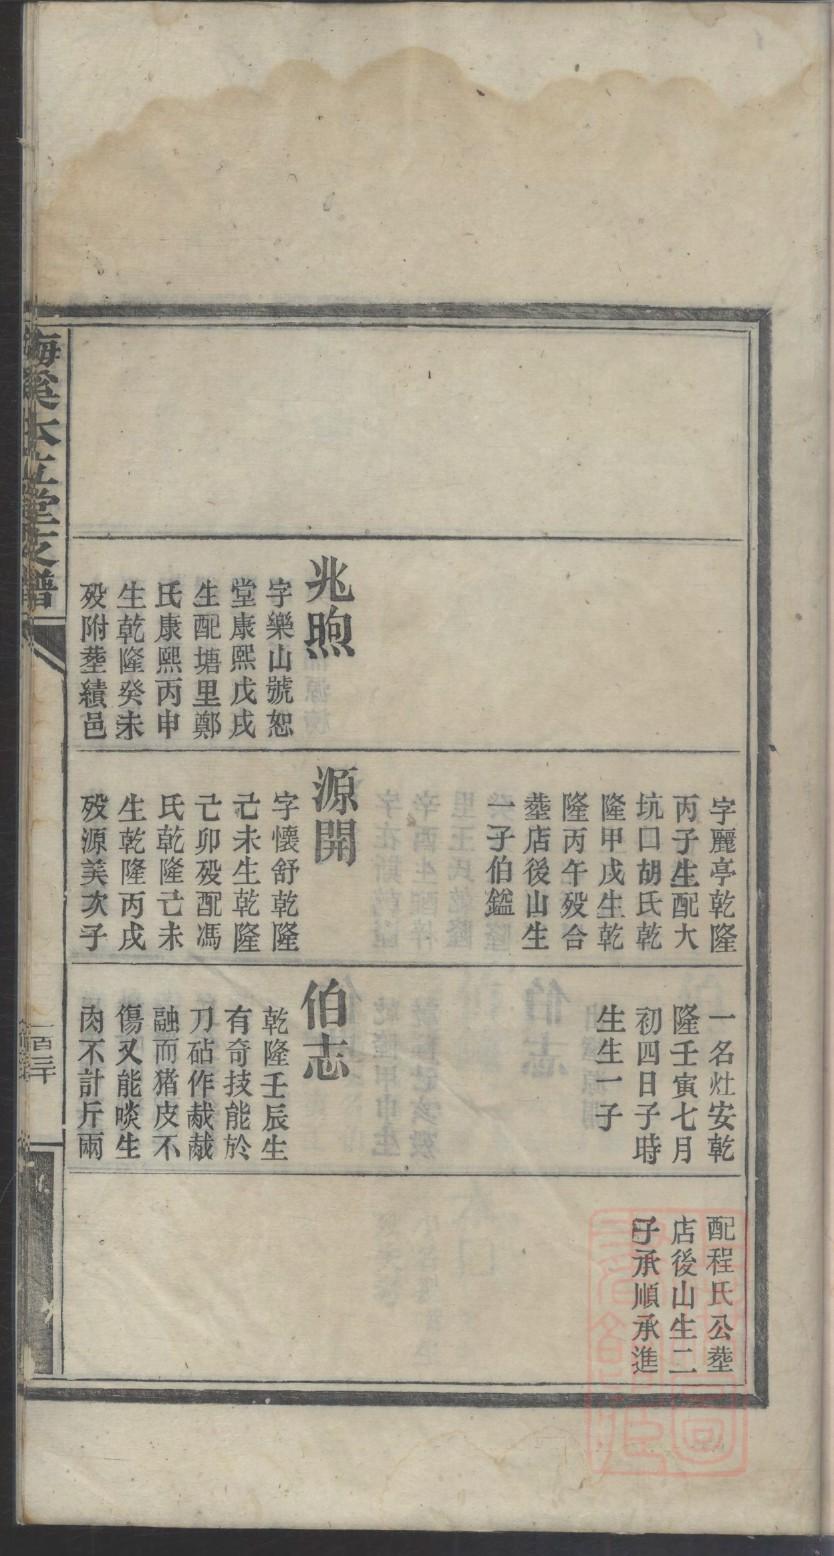 兆煦
字樂山號恕
堂康熙戊戌
生配塘里鄭
氏康熙丙申
生乾隆癸未
歿附塟績邑
字麗亭乾隆
丙子生配大
坑口胡氏乾
隆甲戌生乾
隆丙午歿合
塟店後山生
一子伯鎰
源開
字懷舒乾隆
己未生乾隆
己卯歿配馮
氏乾隆己未
生乾隆丙戌
歿源美次子
一名灶安乾
隆壬寅七月
初四日子時
生生一子
伯志
乾隆壬辰生
有奇技能於
刀砧作胾胾
融而猪皮不
傷又能啖生
肉不計斤兩
配程氏公塟
店後山生二
子承順承進
梅溪本立堂支譜